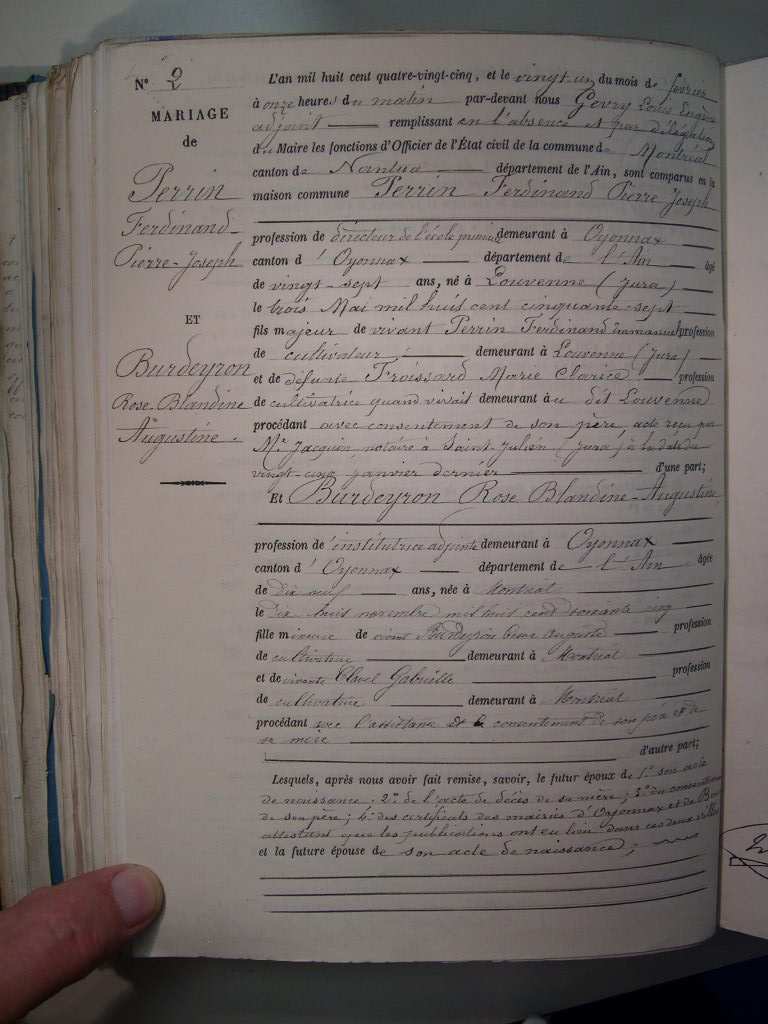 N° 2
MARIAGE
de
Perrin
Ferdinand
Pierre-Joseph
ET
Burdeyron
Rose-Blandine
Augustine.
L'an mil huit cent quatre-vingt-cinq, et le vingt-un du mois de février
à onze heures du matin par-devant nous Gevry Louis Eugène
adjoint remplissant en l'absence et par délégation
du Maire les fonctions d'Officier de l'État civil de la commune de Montréal
canton de Nantua département de l'Ain, sont comparus en la
maison commune Perrin Ferdinand Pierre Joseph
profession de directeur de l'école primaire demeurant à Oyonnax
canton d'Oyonnax département de l'Ain âgé
de vingt-sept ans, né à Louvenne (Jura)
le trois Mai mil huit cent cinquante-sept
fils majeur de vivant Perrin Ferdinand profession
de cultivateur demeurant à Louvenne (Jura)
et de défunte Froissard Marie Clarice profession
de cultivatrice quand vivait demeurant au dit Louvenne
procédant avec consentement de son père, acte reçu par
Me Jacquin, notaire à Saint-Julien (Jura) à la date du
vingt-cinq janvier dernier d'une part;
Et Burdeyron Rose Blandine-Augustine,
profession de institutrice adjointe demeurant à Oyonnax
canton d'Oyonnax département de l'Ain âgée
de dix neuf ans, née à Montréal
le dix huit novembre mil huit cent soixante cinq
fille mineure de vivant Burdeyron auguste profession
de cultivateur demeurant à Montréal
et de vivante Clavel Gabrielle profession
de cultivatrice demeurant à Montréal
procédant avec l'assistance et le consentement de son père et de
sa mère
d'autre part;
Lesquels, après nous avoir fait remise, savoir, le futur époux de 1° son acte
de naissance; 2° de l'acte de décès de sa mère; 3° du consentement
de son père; 4° des certificats des mairies d'Oyonnax et de
attestant que les publications ont eu lieu dans ces deux villes
et la future épouse de son acte de naissance;